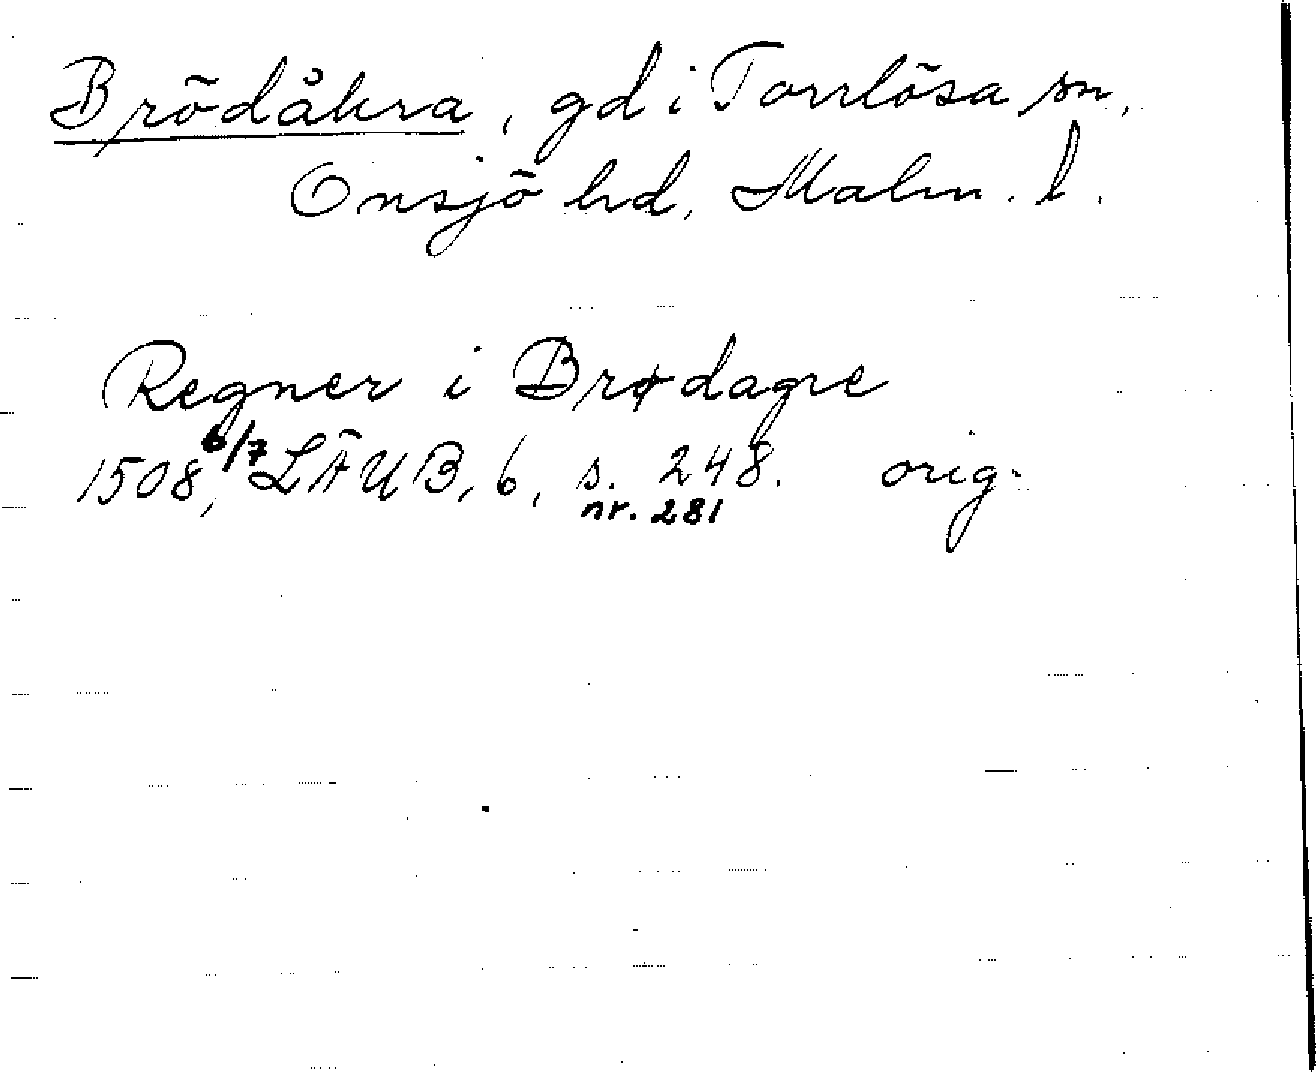 Brödåkra, gd i Torrlösa sn,
Onsjö hd, Malm. l.
Regner i Brødagre
1508 6/7, LÄUB, 6, s. 248. orig.
nr. 281